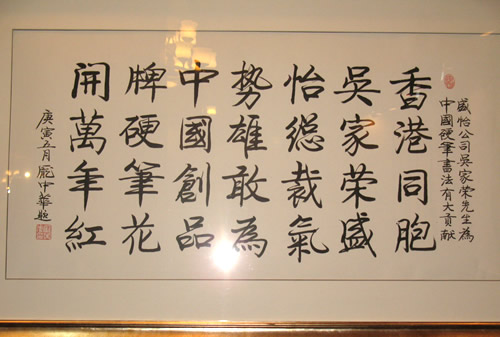 盛怡公司吳家荣先生為
中國硬筆書法有大貢献
香港同胞
吳家荣盛
怡総裁氣
勢雄敢為
中國創品
牌硬筆花
開萬年紅
庚寅五月龐中華題